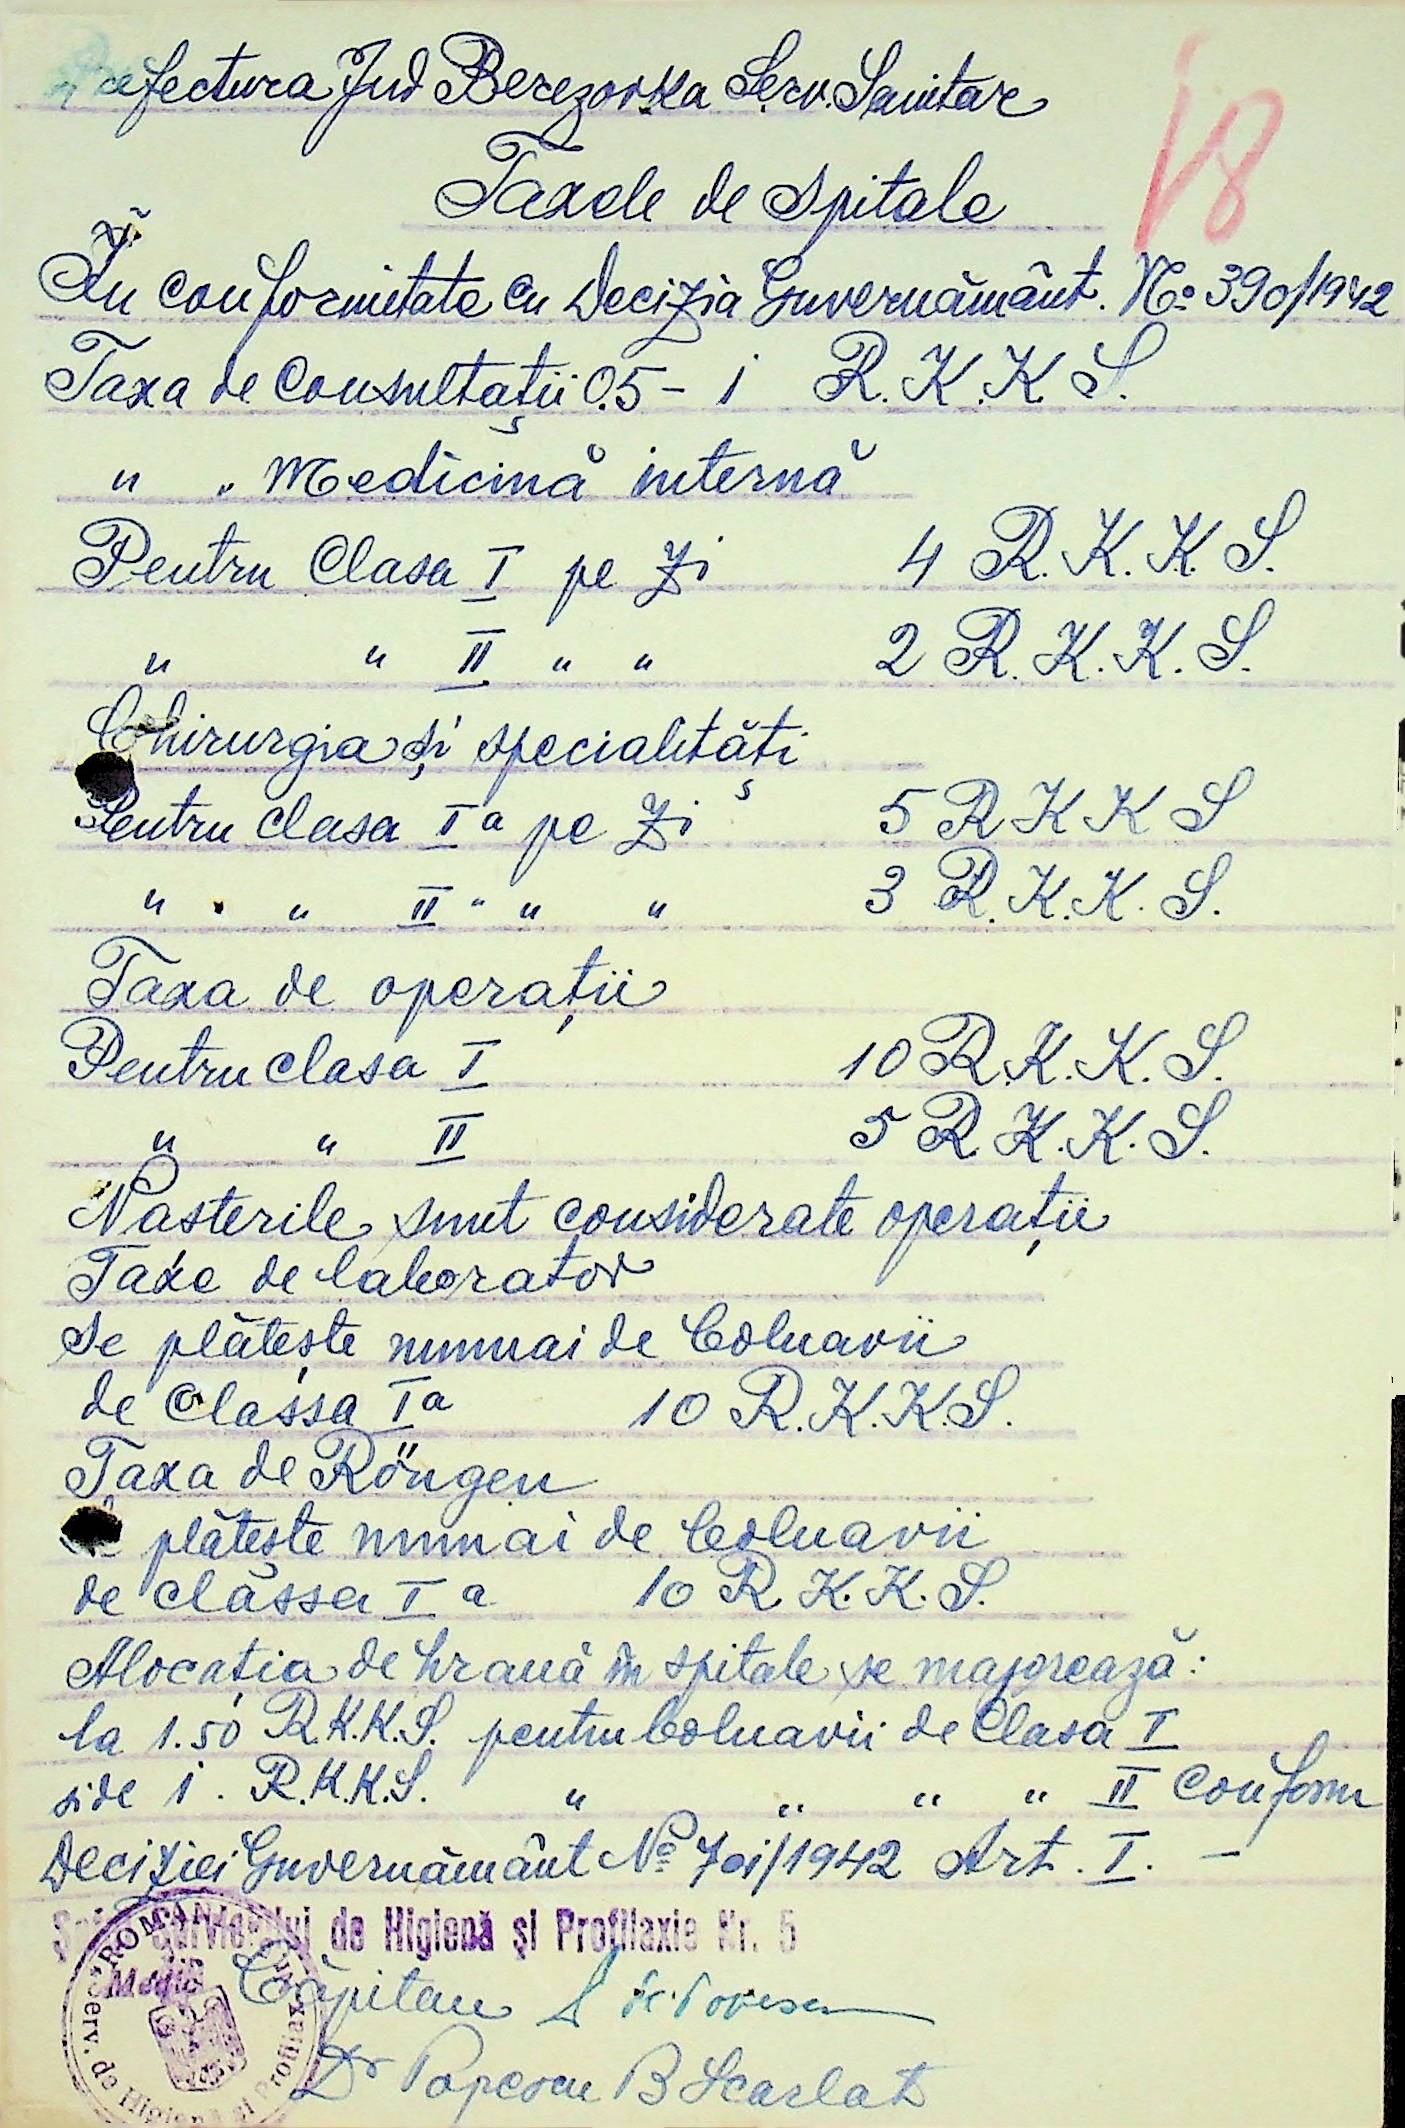 Prefectura Jud Berezovka Serv. Sanitar
18
Taxele de spitale
În conformitate cu Decizia Guvernământ. No 390/1942
Taxa de Consultații 0.5 - 1 R.K.K.S.
" " Medicină internă
Pentru Clasa I pe zi 4 R.K.K.S.
" " II " " 2 R.K.K.S.
Chirurgia și specialități
Pentru clasa I a pe zi 5 R K K S
" " II " " " 3 R.K.K.S.
Taxa de operații
Pentru clasa I 10 R.K.K.S.
" " II 5 R.K.K.S.
Nasterile sunt considerate operații
Taxe de laborator
Se plătește numai de bolnavii
de Classa I a 10 R.K.K.S.
Taxa de Röngen
plătește numai de bolnavii
de classa I a 10 R.K.K.S.
Alocația de hrană în spitale se majorează:
la 1.50 R.K.K.S. pentru bolnavii de Clasa I
si de 1. R.K.K.S. " " " " II Conform
Deciziei Guvernământ No 701/1942 Art. I. -
Șeful Serviciului de Higienă și Profilaxie Nr. 5
Medic Căpitan
Dr Popescu B Scarlat
ROMÂNIA
Serv. de Higienă și Profilaxie